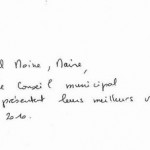 Maire,
e Conseil municipal
présentent leurs meilleurs v
2010.